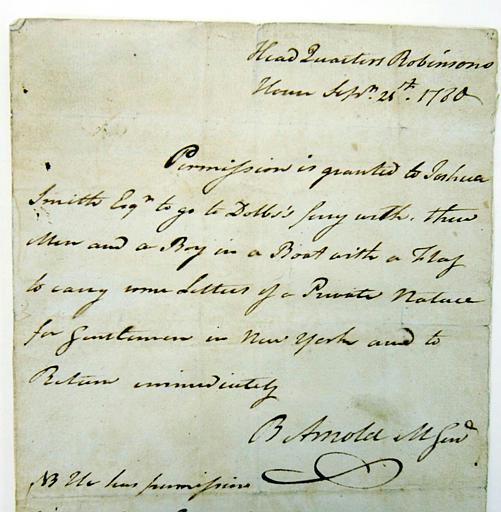 Head Quarters Robinsons
House Sepr. 21st. 1780
Permission is granted to Joshua
Smith Esqr. to go to Dobbs's ferry with three
Men and a Boy in a Boat with a Flag
to carry some Letters of a Private Nature
for Gentlemen in New York and to
Return immediately
B Arnold M Genl
NB He has permission